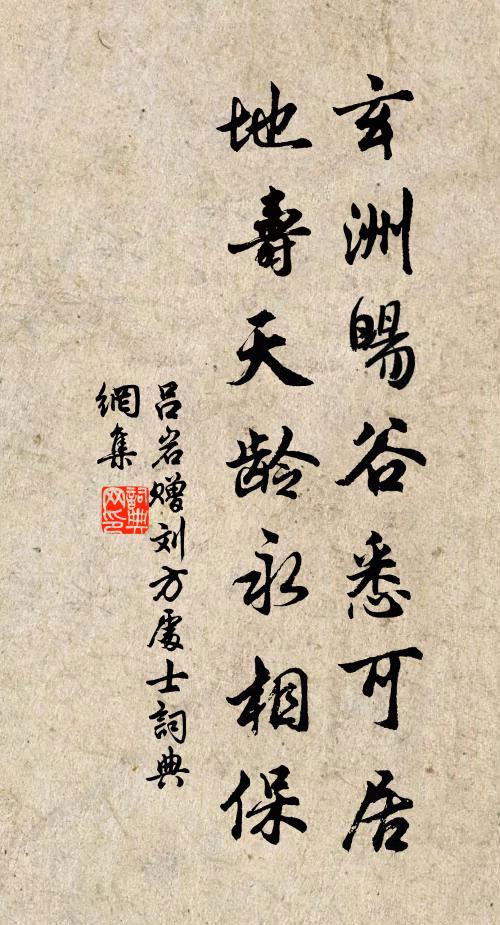 玄洲暘谷悉可居
地壽天齡永相保
吕岩赠刘方處士詞典
網集
詞典網印